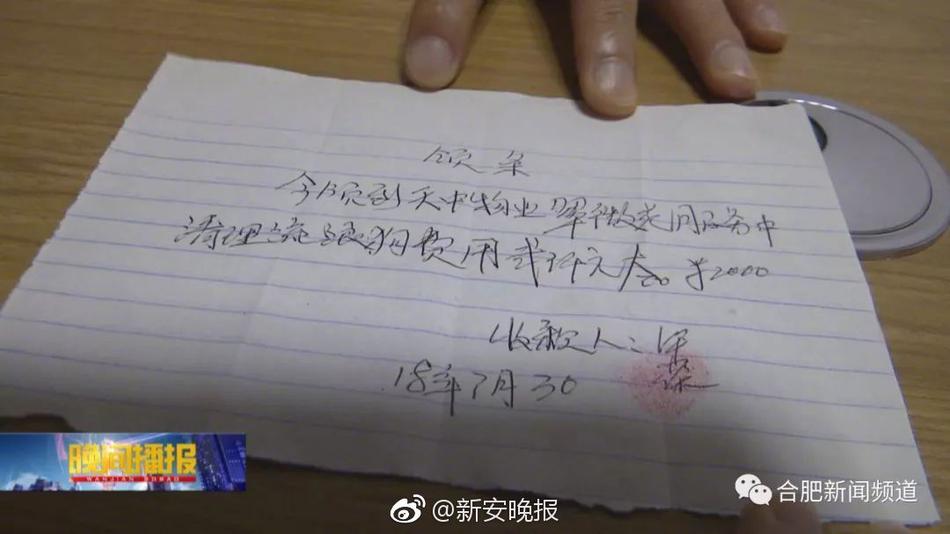 领条
今领到天中物业翠微花园服务中
清理流浪狗费用贰仟元大 ¥2000
收款人:
18年7月30
晚间播报
WANJIAN BOBAO
@新安晚报
合肥新闻频道